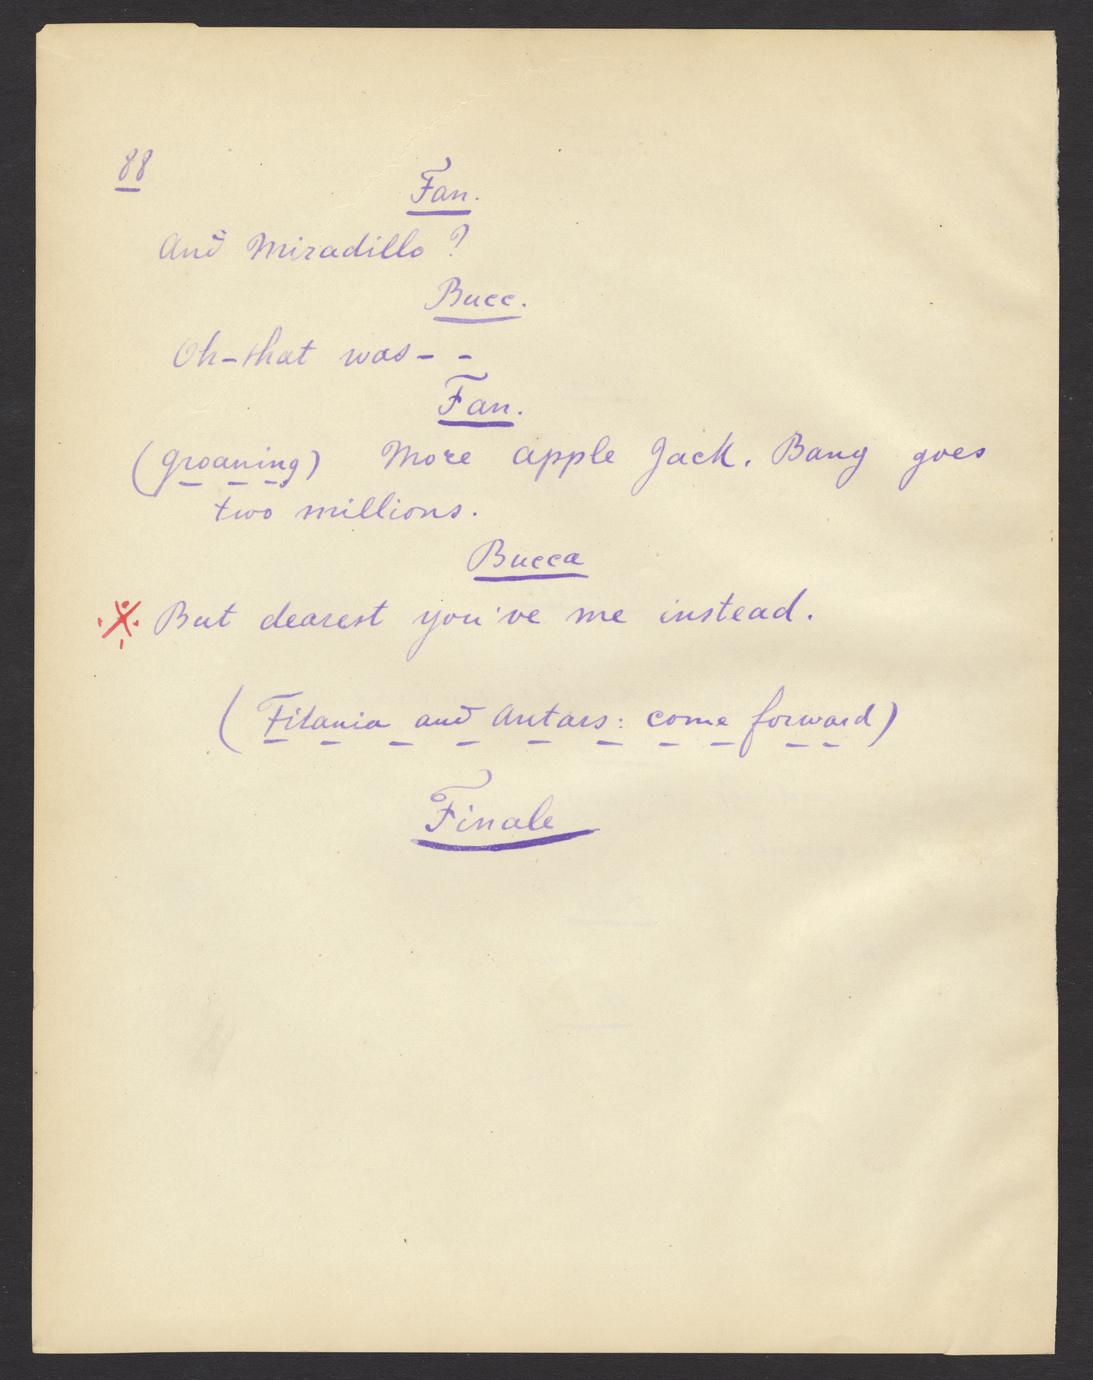 88
Fan.
And Miradillo ?
Bucc.
Oh-that was- -
Fan.
(groaning) More apple Jack. Bang goes
two millions.
Bucca
But dearest you've me instead.
(Titania and Antars: come forward)
Finale